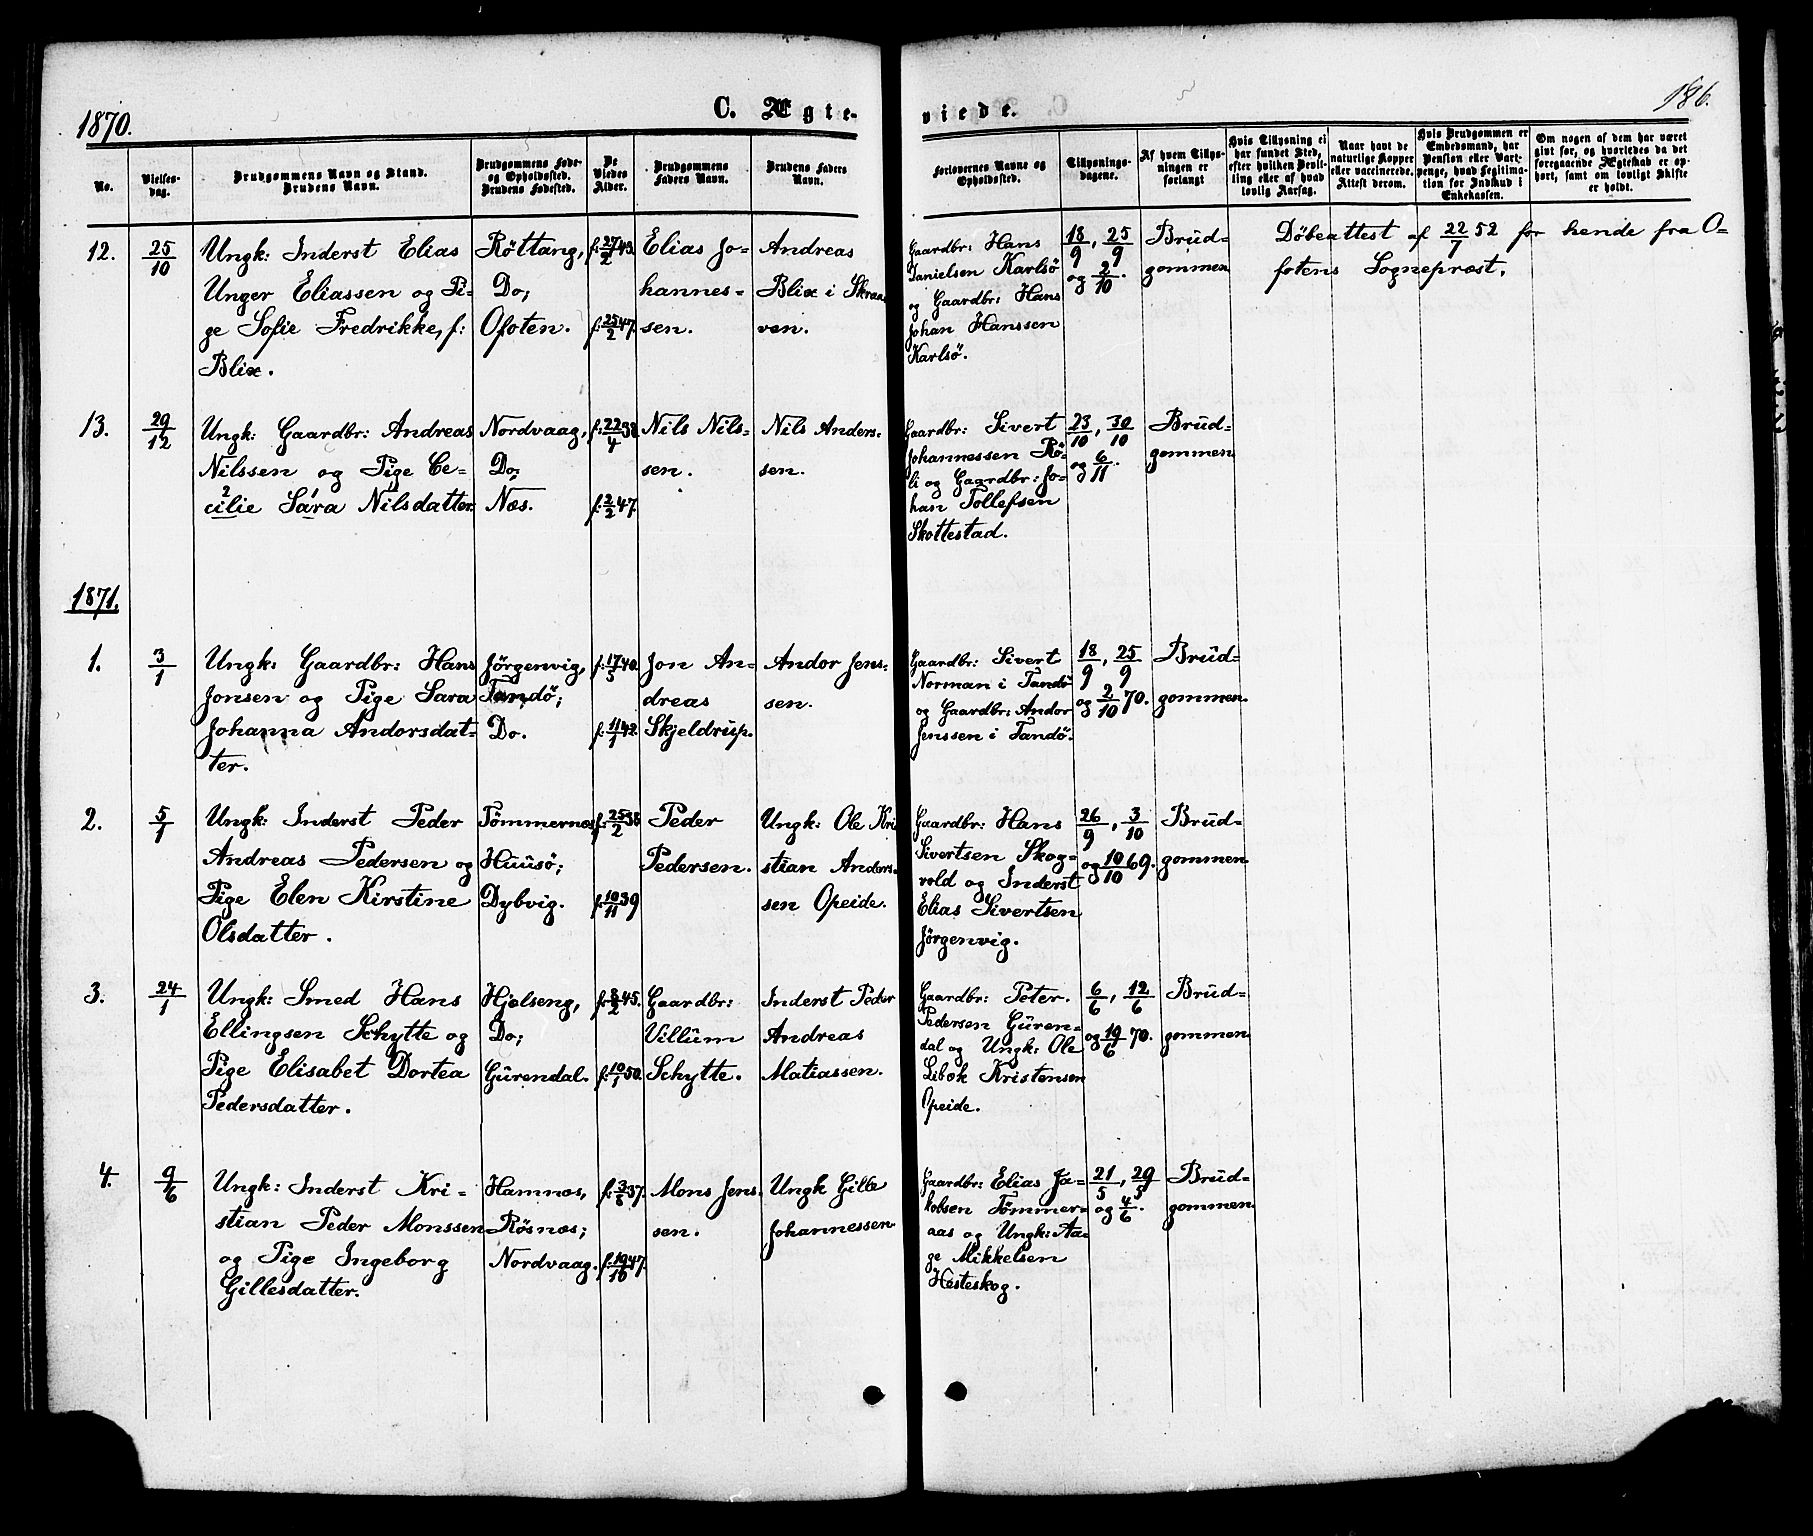 1870.
C. Ægte-
viede.
186.
No.
Vielses-
dag.
Brudgommens Navn og Stand.
Brudens Navn.
Brudgommens Føde-
og Opholdssted.
Brudens Fødested.
De
Viedes
Alder.
Brudgommens
Faders Navn.
Brudens Faders
Navn.
Forlovernes Navne og
Opholdssted.
Tillysnings-
dagene.
Af hvem Tillys-
ningen er
forlangt
Hvis Tillysning ei
har fundet Sted,
efter hvilken Bevil-
ling eller af hvad
lovlig Aarsag.
Naar havt de
naturlige Kopper
eller vaccinerede.
Attest derom.
Hvis Brudgommen er
Embedsmand, har
Pension eller Vart-
penge, hvad Legitima-
tion for Indskud i
Enkekassen.
Om nogen af dem har været
gift før, og hvorledes da det
foregaaende Ægteskab er op-
hørt, samt om lovligt Skifte
er holdt.
12.
25/10
Ungk: Inderst Elias
Unger Eliassen og Pi-
ge Sofie Fredrikke, f:
Blix.
Röttang,
Do;
Ofoten.
f: 27/2 43.
f: 25/2 47.
Elias Jo-
hannes-
sen.
Andreas
Blix i Skraa-
ven.
Gaardbr: Hans
Danielsen Karlsö
og Gaardbr: Hans
Johan Hanssen
Karlsö.
18/9, 25/9
og 2/10.
Brud-
gommen
Döbeattest af 22/7 52 for hende fra O-
fotens Sognepræst.
13.
29/12
Ungk: Gaardbr: Andreas
Nilssen og Pige Ce-
cilie Sara Nilsdatter.
Nordvaag,
Do;
Næs.
f: 22/4 38.
f: 2/2 47.
Nils Nils-
sen.
Nils Anders-
sen.
Gaardbr: Sivert
Johannessen Rö-
li og Gaardbr: Jo-
han Tollefsen
Skottestad.
23/10, 30/10
og 6/11.
Brud-
gommen
1871.
1.
3/1
Ungk: Gaardbr: Hans
Jonsen og Pige Sara
Johanna Andorsdat-
ter.
Jörgenvig,
Tandö;
Do.
f: 17/5 40.
f: 11/1 42.
Jon An-
dreas
Skjeldrup.
Andor Jens-
sen.
Gaardbr: Sivert
Norman i Tandö
og Gaardbr: Andor
Jenssen i Tandö.
18/9, 25/9
og 2/10 70.
Brud-
gommen.
2.
5/1
Ungk: Inderst Peder
Andreas Pedersen og
Pige Elen Kirstine
Olsdatter.
Tömmernæs,
Huusö;
Dybvig.
f: 25/2 38
f: 10/11 39
Peder
Pedersen.
Ungk: Ole Kri
stian Anders-
sen Opeide.
Gaardbr: Hans
Sivertsen Skog-
vold og Inderst
Elias Sivertsen
Jörgenvig.
26/9, 3/10
og 10/10 69.
Brud-
gommen.
3.
24/1
Ungk: Smed Hans
Ellingsen Schytte og
Pige Elisabet Dortea
Pedersdatter.
Hjelseng,
Do;
Gurendal.
f: 8/2 45.
f: 10/1 50.
Gaardbr:
Villum
Schytte.
Inderst Peder
Andreas
Matiassen.
Gaardbr: Peter.
Pedersen Guren-
dal og Ungk: Ole
Libok Kristensen
Opeide.
6/6, 12/6
og 19/6 70.
Brud-
gommen
4.
9/6
Ungk: Inderst Kri-
stian Peder Monssen
og Pige Ingeborg
Gillesdatter.
Hamnæs,
Rösnæs;
Nordvaag.
f: 3/5 37.
f: 19/10 47.
Mons Jens-
sen.
Ungk Gille
Johannessen
Gaardbr: Elias Ja-
kobsen Tömmer-
aas og Ungk: Aa-
ge Mikkelsen
Hesteskog.
21/5, 29/5
og 4/6.
Brud-
gommen.